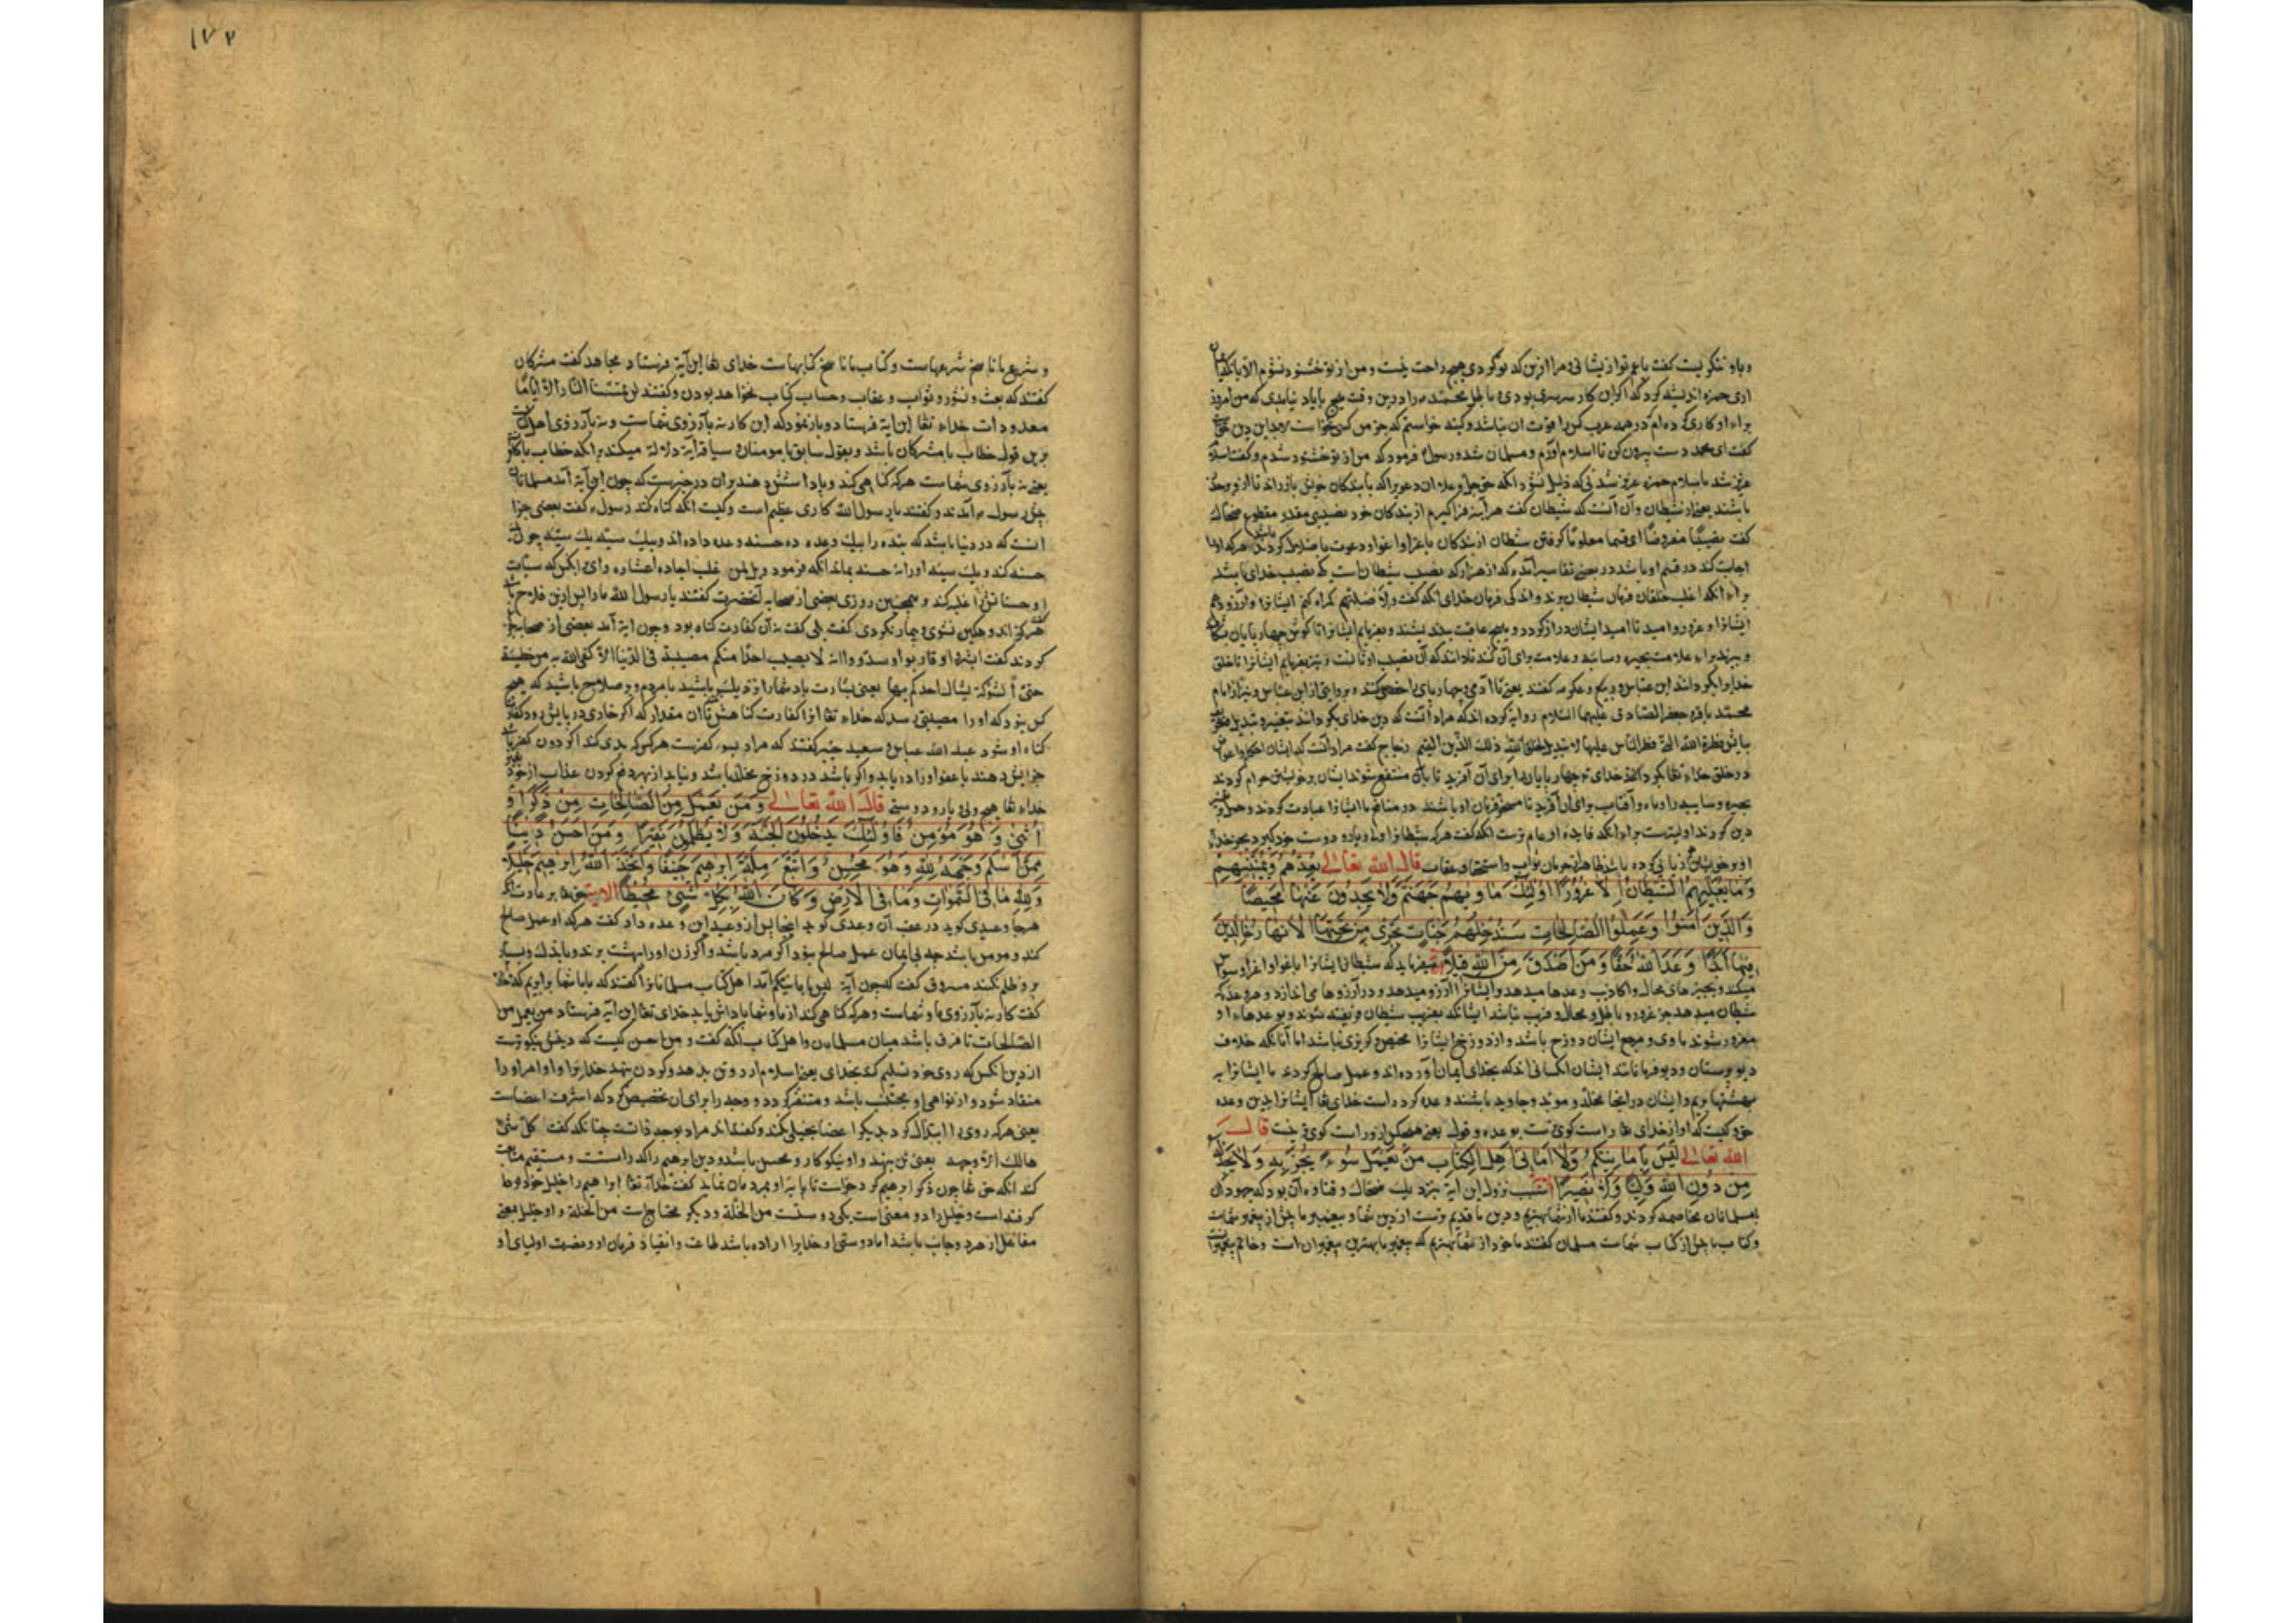 و باو ننگریست کفت یا عم تو از پشانی مرا ازین که تو کردی هیچ راحت نیست و من از تو خشنود نشوم الا بآنکه
ازی حمزه اندیشه کرد که اگر این کار سرسری بودی یا باطل محمد مرا درین وقت هیچ یا یاد نیامدی که من امروز
برای او کاری کرده ام که در همه عرب کس را قوت آن نباشد و کویند خواستم که جز من کسی
کفت ای محمد دست بیرون کن تا اسلام آورم و مسلمان شد و رسول فرمود که من از تو خشنود شدم و کفت
عزیز شد باسلام حمزه عزیز شدنی که ذلیل نشود
باشند یعنی از شیطان و آن آنست که شیطان کفت هر آینه فراکیرم از بندکان خود نصیبی مقدر مقطوع ضحاک
کفت نصیبا مفروضا ای قسما معلوما کرفتن شطان از بندکان باغرا و اغوا و دعوت با ضلال کردن هر که او را
اجابت کند در قسم او باشد در بعضی تفاسیر آمده که از هزار یکی نصیب شیطان است یک نصیب خدای باشد
برای آنکه اغلب خلقان فرمان شیطان برند و اندکی فرمان خدای آنکه کفت ولاضلنهم کمراه کنم ایشانرا و آرزو دهم
ایشانرا و غرور و امید تا امید ایشان دراز کردد و بهیچ عاقبت نیندیشند و بفرمایم ایشانرا تا کوش چهار پایان
و ببرند برای علامت بحیره و سایبه و علامت برای آن کنند تا دانند که آن نصیب اوثانست و نیز بفرمایم ایشانرا تا خلق
خدایرا بکردانند ابن عباس و ربیع و عکرمه کفتند یعنی تا آدمی و چهار پای را خصی کنند و بروایتی از ابن عباس و نیز از امام
محمد باقر و جعفر الصادق علیهما السلام روایة کرده اند که مراد آنست که دین خدای بکردانند بتغییر و تبدیل
بیانش فطرة الله التی فطر الناس علیها لا تبدیل لخلق الله ذلک الدین القیم زجاج کفت مراد آنست که ایشان
در خلق خدای تعا بکردانند خدای تعا چهار پایان را برای آن آفرید تا بآن منتفع شوند ایشان بر خویشتن حرام کردند
بحیره و سایبه را و ماه و آفتاب برای آن آفرید تا مسخر فرمان او باشند در منافع ما ایشانرا عبادت کردند و حمل بر
دین کردن اولیتر است برای آنکه فایده او عام ترست آنکه کفت هر که شیطانرا ولی و یار و دوست خود کیرد بجز خدای
او بر خویشتن زیانی کرده باشد ظاهر از حرمان ثواب و استحقاق عقاب قال الله تعالی یعدهم ویمنیهم
وما یعدهم الشیطان الا غرورا اولئک ماویهم جهنم ولا یجدون عنها محیصا
والذین امنوا وعملوا الصالحات سندخلهم جنات تجری من تحتها الانهار خالدین
فیها ابدا وعد الله حقا ومن اصدق من الله قیلا میفرماید که شیطان ایشانرا باغوا و اغرا دسوسه
میکند و بچیزهای محال و اکاذیب وعدها میدهد و ایشانرا آرزو میدهد و در آرزوها می اندازد و هر وعده که
شطان میدهد جز غرور و باطل و محال و فریب نباشد ایشانکه بفریب شیطان فریفته شوند و بوعدهاء او
مغرور شوند ماوی و مرجع ایشان دوزخ باشد و از دوزخ ایشانرا محیص و کریزی نباشد اما آنانکه خلاف
دیوپرستان و دیو فرمانانند ایشان آنکسانی اند که بخدای ایمان آورده اند و عمل صالح کردند ما ایشانرا به
بهشتها بریم و ایشان در آنجا مخلد و مؤبد و جاوید باشند وعده کردراست خدای تعا ایشانرا بدین وعده
حق و کیست که او از خدای تعا راست کوی ترست بوعده و قول یعنی هیچکس از و راست کوی تر نیست قال
الله تعالی لیس بامانیکم ولا امانی اهل الکتاب من یعمل سوء یجز به ولا یجد له
من دون الله ولیا ولا نصیرا سبب نزول این آیة بنزدیک ضحاک و قتاده آن بود که جهودان
بمسلمانان مخاصمه کردند و کفتند ما از شما بهتریم و دین ما قدیم ترست از دین شما و پیغمبر ما پیش از پیغمبر شماست
و کتاب ما پیش از کتاب شماست مسلمان کفتند ما خود از شما بهتریم که پیغمبر ما بهترین پیغمبران است و خاتم
۱۷۲
و شرع ما ناسخ شرعهاست و کتاب ما ناسخ کتابهاست خدای تعا این آیة فرستاد مجاهد کفت مشرکان
کفتند که بعث و نشور و ثواب و عقاب و حساب و کتاب نخواهد بودن و کفتند لن تمسنا النار الا ایاما
معدودات خداء تعا این آیة فرستاد و بازنمود که این کار نه بآرزوی شماست و نه بآرزوی اهل کتاب
برین قول خطاب با مشرکان باشد و بقول سابق با مومنان و سیاقه آیة دلالة میکند برانکه خطاب با
یعنی نه بآرزوی شماست هرکه کناهی کند پاداشتش دهند بران در خبرست که چون این آیة آمد مسلمانان
پیش رسول آمدند و کفتند یا رسول الله کاری عظیم است و کیست آنکه کناه نکند رسول کفت بعضی جزا
آنست که در دنیا باشد که بنده را بیک وعده ده حسنه وعده داده اند و بیک سیئه یک سیئه چون
حسنه کند و یک سیئه او را نه حسنه بماند آنکه فرمود ویل لمن غلب احاده اعشاره وای آنکس که سیئات
او حسناتش را غلبه کند و همچنین روزی بعضی از صحابه آنحضرت کفتند یا رسول الله ما را پس ازین فلاح
هرکز اندوهکین نشوی و بیمار نکردی کفت بلی کفت آن کفارت کناه بود و چون آیة آمد بعضی از صحابه
کردند کفت ابشروا وقاربوا وسددوا انه لا یصیب احدا منکم مصیبة فی الدنیا الا کفر الله به من خطیئة
حتی الشوکة یشاک احدکم بها یعنی بشارت باد شما را و نزدیک باشید بامردم و بر صلاح باشید که هیچ
کس نبود که او را مصیبتی رسد که خداء تعا انرا کفارت کناهش تا آن مقدار که اکر خاری در پایش رود
کناه او شود عبد الله عباس و سعید جبیر کفتند که مراد بسوء کفرست هر کس که بدی کند
جزایش دهند یا عفو او را دریابد و اکر باشد در دوزخ مخلد باشد و نیابد از بهر دفع کردن عذاب از خود
خداء تعا هیچ ولی یار و دوستی قال الله تعالی ومن یعمل من الصالحات من ذکر او
انثی وهو مؤمن فاولئک یدخلون الجنة ولا یظلمون نقیرا ومن احسن دینا
ممن اسلم وجهه لله وهو محسن واتبع ملة ابرهیم حنیفا واتخذ الله ابرهیم خلیلا
ولله ما فی السموات وما فی الارض وکان الله بکل شیئ محیطا الایة حق تعا بر عادت آنکه
هرجا وعیدی کوید در عقب آن وعدی کوید اینجا پس از وعید این وعده داد کفت هرکه او عمل صالح
کند و مومن باشد چه بی ایمان عمل صالح نبود اکر مرد باشد و اکر زن او را بهشت برند و باندک و بسیار
برو ظلم نکنند مسروق کفت که چون آیة لیس بامانیکم آمد اهل کتاب مسلمانانرا کفتند که ما با شما برابریم که خدا
کفت کار نه بآرزوی ما و شماست و هر که کناهی کند از ما و شما پاداش یابد خدای تعا این آیة فرستاد من یعمل من
الصالحات تا فرق باشد میان مسلمانان و اهل کتاب آنکه کفت و من احسن کیست که دینش نیکوترست
از دین آنکس که روی خود تسلیم کند بخدای یعنی اسلام آرد و تن بدهد و کردن نهد خدایرا و اوامر او را
منقاد شود و از نواهی او مجتنب باشد و متنفر کردد و وجه را برای آن تخصیص کرد که اشرف اعضاست
یعنی هر که روی را ابتذال کرد بدیکر اعضا بخیلی نکند و کفته اند مراد بوجه ذاتست چنانکه کفت کل شیئ
هالک الا وجهه یعنی تن بنهد و او نیکوکار و محسن باشد و دین ابرهیم را که راستست و مستقیم متابعت
کند آنکه حق تعا چون ذکر ابرهیم کرد
کرفته است و خلیل را دو معنی است یکی دوستست من الخلة و دیکر محتاج است من الخلة و او خلیل بمعنی
مفاعل از هر دو جانب باشد اما دوستی او خدایرا اراده باشد طاعت و انقیاد فرمان او و نصرت اولیای او